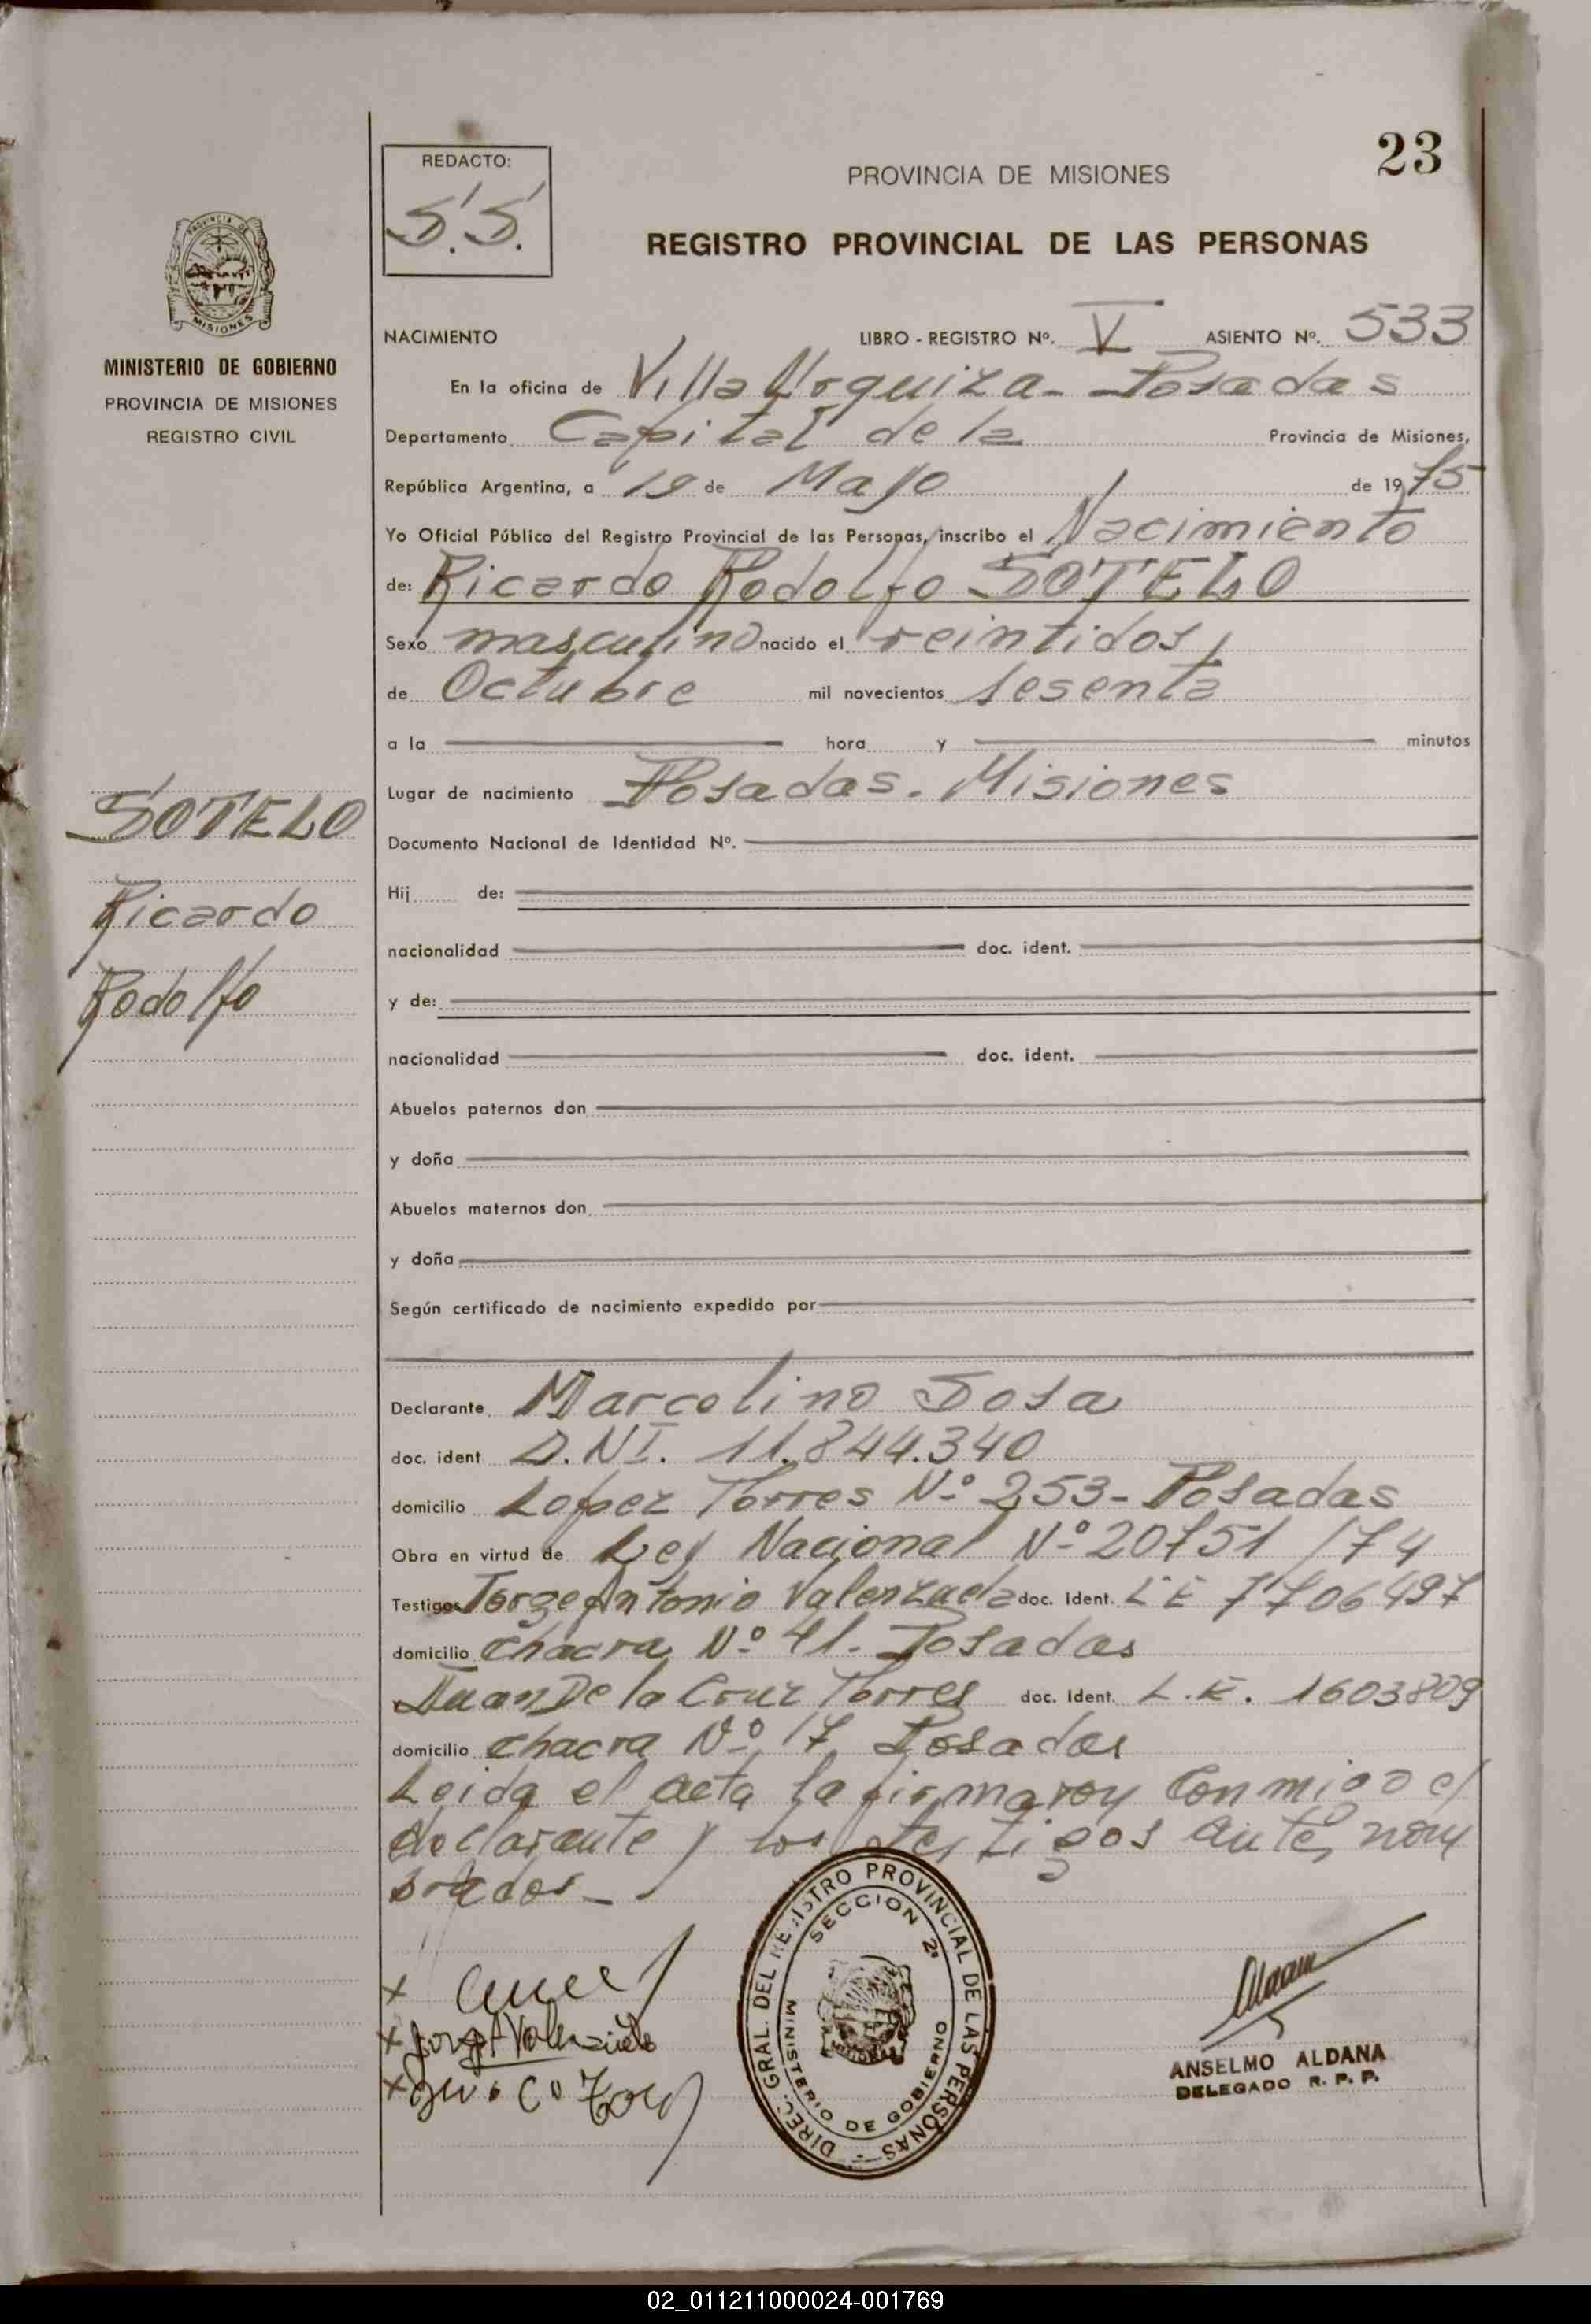 23
REDACTO:
S.S.
PROVINCIA DE MISIONES
REGISTRO PROVINCIAL DE LAS PERSONAS
PROVINCIA DE
MISIONES
MINISTERIO DE GOBIERNO
PROVINCIA DE MISIONES
REGISTRO CIVIL
SOTELO
Ricardo
Rodolfo
NACIMIENTO LIBRO - REGISTRO Nº. V ASIENTO Nº. 533
En la oficina de Villa Urquiza - Posadas
Departamento Capital de la Provincia de Misiones,
República Argentina, a 19 de Mayo de 1975
Yo Oficial Público del Registro Provincial de las Personas, inscribo el Nacimiento
de: Ricardo Rodolfo SOTELO
Sexo masculino nacido el veintidos
de Octubre mil novecientos sesenta
a la hora y minutos
Lugar de nacimiento Posadas. Misiones
Documento Nacional de Identidad Nº.
Hij de:
nacionalidad doc. ident.
y de:
nacionalidad doc. ident.
Abuelos paternos don
y doña
Abuelos maternos don
y doña
Según certificado de nacimiento expedido por
Declarante Marcelino Sosa
doc. ident D.N.I. 11.844.340
domicilio Lopez Torres Nº 253 - Posadas
Obra en virtud de Ley Nacional Nº 20751/74
Testigos Jorge Antonio Valenzuela doc. Ident. L E 7706497
domicilio chacra Nº 41. Posadas
Juan De la Cruz Torres doc. Ident. L.E. 1603809
domicilio chacra Nº 17 Posadas
Leida el acta la firman conmigo el
declarante y los testigos ante nom
brados -
DIREC. GRAL. DEL REGISTRO PROVINCIAL DE LAS PERSONAS
SECCION 2ª
MINISTERIO DE GOBIERNO
x
x Jorge A Valenzuela
x
ANSELMO ALDANA
DELEGADO R. P. P.
02_011211000024-001769